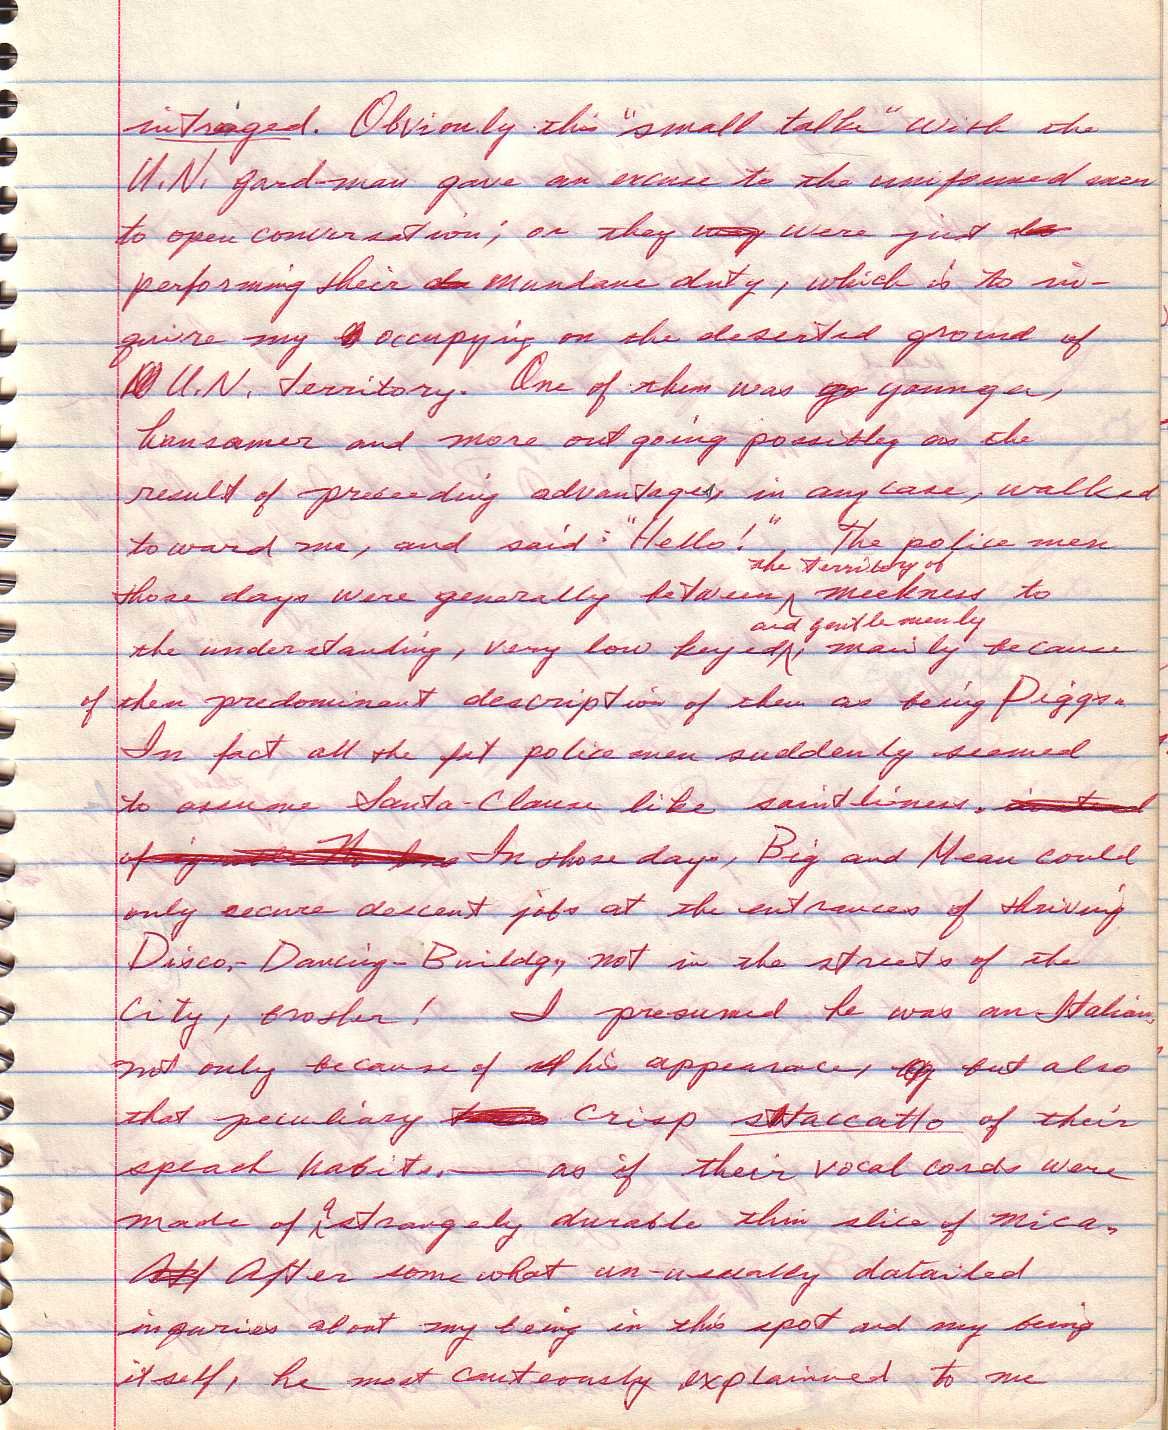 intrigged. Obviously this "small talk" with the
U.N. gard-man gave an excuse to the uniformed men
to open conversation; or they were just
performing their mundane duty, which is to in-
quire my occupying on the deserted ground of
U.N. Territory. One of them was younger,
hansomer and more outgoing possibly as the
result of preceeding advantages, in any case, walked
toward me, and said: "Hello!". The police men
those days were generally between the territory of meekness to
the understanding, very low keyed and gentlemenly, mainly because
of then predominant description of them as being Piggs.
In fact all the fat police men suddenly seemed
to assume Santa-Clause like saintliness.
In those days, Big and Mean could
only secure descent jobs at the entrances of thriving
Disco-Dancing-Buildg, not in the streets of the
City, brother! I presumed he was an Italian,
not only because of his appearance, but also
that peculiary crisp sttaccatto of their
speach habits. — as if their vocal cords were
made of a strangely durable thin slice of mica.
After somewhat un-usually datailed
inquries about my being in this spot and my being
itself, he most cauteously explainned to me